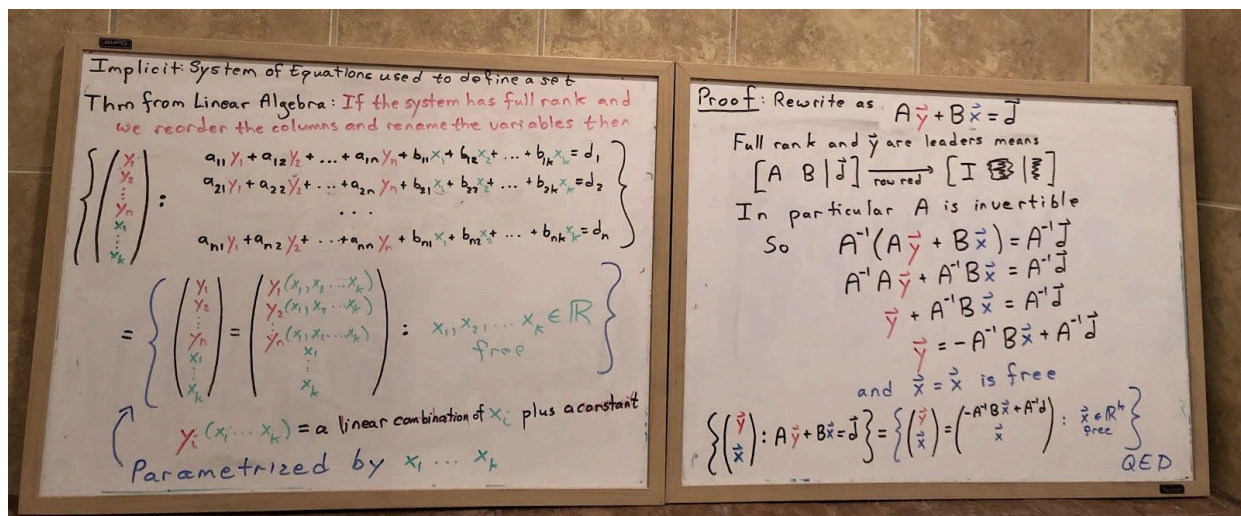 Implicit: System of Equations used to define a set
Thm from Linear Algebra: If the system has full rank and
we reorder the columns and rename the variables then
{ ( y₁ y₂ ⋮ yₙ x₁ ⋮ xₖ ) :
a₁₁y₁ + a₁₂y₂ + ... + a₁ₙyₙ + b₁₁x₁ + b₁₂x₂ + ... + b₁ₖxₖ = d₁
a₂₁y₁ + a₂₂y₂ + ... + a₂ₙyₙ + b₂₁x₁ + b₂₂x₂ + ... + b₂ₖxₖ = d₂
...
aₙ₁y₁ + aₙ₂y₂ + ... + aₙₙyₙ + bₙ₁x₁ + bₙ₂x₂ + ... + bₙₖxₖ = dₙ }
= { ( y₁ y₂ ⋮ yₙ x₁ ⋮ xₖ ) = ( y₁(x₁,x₂...xₖ) y₂(x₁,x₂...xₖ) ⋮ yₙ(x₁,x₂...xₖ) x₁ ⋮ xₖ ) : x₁, x₂, ... xₖ ∈ ℝ
free }
yᵢ(x₁ ... xₖ) = a linear combination of xᵢ plus a constant
Parametrized by x₁ ... xₖ
Proof: Rewrite as A y⃗ + B x⃗ = d⃗
Full rank and y⃗ are leaders means
[A B | d⃗] → row red [I | ]
In particular A is invertible
So A⁻¹(A y⃗ + B x⃗) = A⁻¹ d⃗
A⁻¹A y⃗ + A⁻¹B x⃗ = A⁻¹ d⃗
y⃗ + A⁻¹B x⃗ = A⁻¹ d⃗
y⃗ = -A⁻¹B x⃗ + A⁻¹ d⃗
and x⃗ = x⃗ is free
{ ( y⃗ x⃗ ) : A y⃗ + B x⃗ = d⃗ } = { ( y⃗ x⃗ ) = ( -A⁻¹B x⃗ + A⁻¹d x⃗ ) : x⃗ ∈ ℝᵏ free }
QED